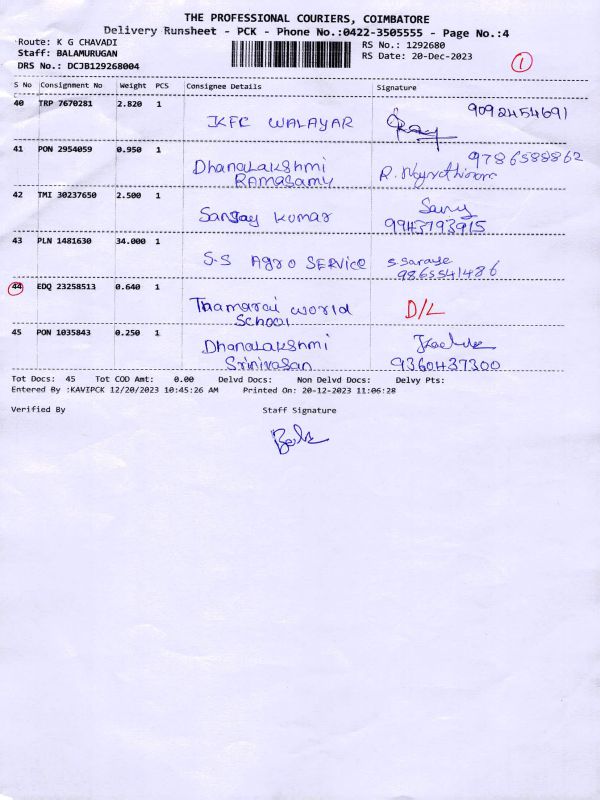 THE PROFESSIONAL COURIERS, COIMBATORE
Delivery Runsheet - PCK - Phone No.:0422-3505555 - Page No.:4
Route: K G CHAVADI
RS No.: 1292680
Staff: BALAMURUGAN
RS Date: 20-Dec-2023
DRS No.: DCJB129268004
1
S No Consignment No Weight PCS Consignee Details Signature
40 TRP 7670281 2.820 1 9092454691
KFC WALAYAR
41 PON 2954059 0.950 1 9786588862
Dhanalakshmi
RAMASAMY R.
42 TMI 30237650 2.500 1
Sanjay kumar Sanj
9943793915
43 PLN 1481630 34.000 1
S.S AGRO SERVICE S.Saraye
9865541486
44 EDQ 23258513 0.640 1
Thamarai world D/L
School
45 PON 1035843 0.250 1
Dhanalakshmi
Srinivasan 9360437300
Tot Docs: 45 Tot COD Amt: 0.00 Delvd Docs: Non Delvd Docs: Delvy Pts:
Entered By :KAVIPCK 12/20/2023 10:45:26 AM Printed On: 20-12-2023 11:06:28
Verified By Staff Signature